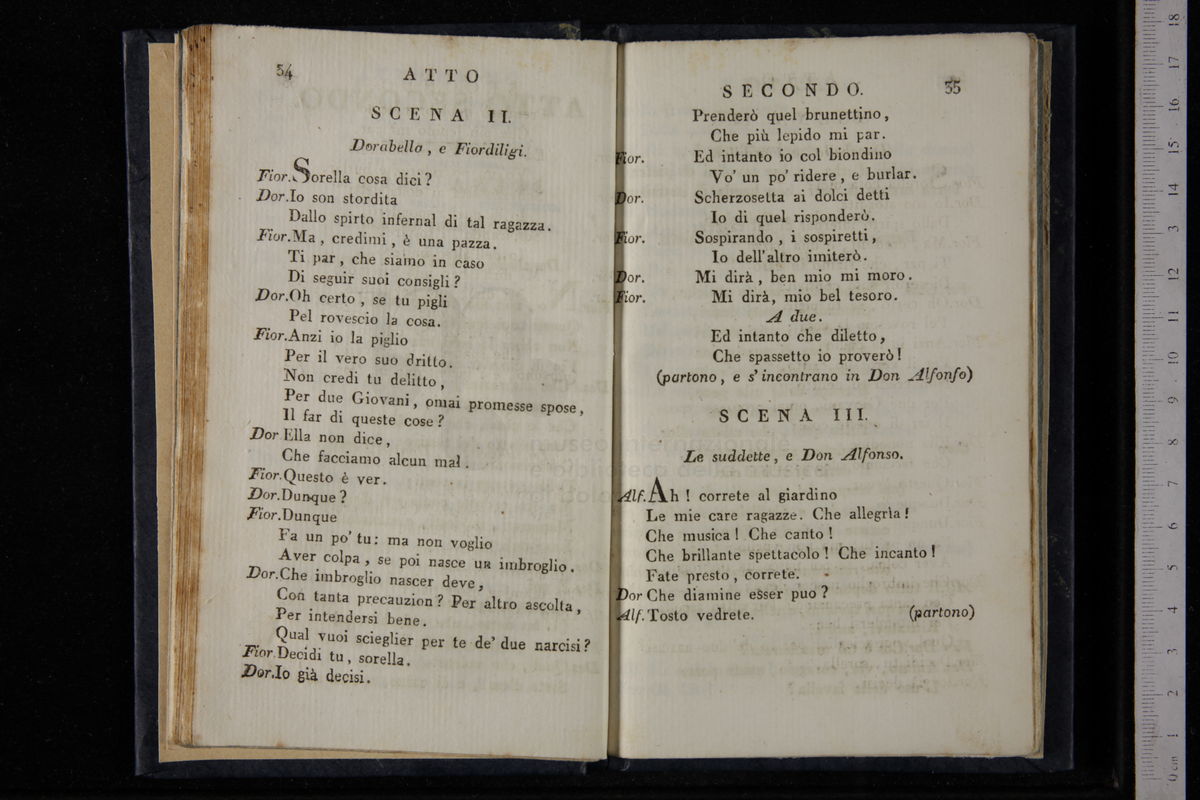 54
ATTO
SCENA II.
Dorabella, e Fiordiligi.
Fior. Sorella cosa dici?
Dor. Io son stordita
Dallo spirto infernal di tal ragazza.
Fior. Ma, credimi, è una pazza.
Ti par, che siamo in caso
Di seguir suoi consigli?
Dor. Oh certo, se tu pigli
Pel rovescio la cosa.
Fior. Anzi io la piglio
Per il vero suo dritto.
Non credi tu delitto,
Per due Giovani, omai promesse spose,
Il far di queste cose?
Dor Ella non dice,
Che facciamo alcun mal.
Fior. Questo è ver.
Dor. Dunque?
Fior. Dunque
Fa un po' tu: ma non voglio
Aver colpa, se poi nasce un imbroglio.
Dor. Che imbroglio nascer deve,
Con tanta precauzion? Per altro ascolta,
Per intendersi bene.
Qual vuoi scieglier per te de' due narcisi?
Fior. Decidi tu, sorella.
Dor. Io già decisi.
SECONDO.
55
Prenderò quel brunettino,
Che più lepido mi par.
Fior. Ed intanto io col biondino
Vo' un po' ridere, e burlar.
Dor. Scherzosetta ai dolci detti
Io di quel risponderò.
Fior. Sospirando, i sospiretti,
Io dell'altro imiterò.
Dor. Mi dirà, ben mio mi moro.
Fior. Mi dirà, mio bel tesoro.
A due.
Ed intanto che diletto,
Che spassetto io proverò!
(partono, e s'incontrano in Don Alfonso)
SCENA III.
Le suddette, e Don Alfonso.
Alf. Ah! correte al giardino
Le mie care ragazze. Che allegrìa!
Che musica! Che canto!
Che brillante spettacolo! Che incanto!
Fate presto, correte.
Dor Che diamine esser puo?
Alf. Tosto vedrete. (partono)
museo internazionale
e biblioteca della musica
0 cm 1 2 3 4 5 6 7 8 9 10 11 12 13 14 15 16 17 18